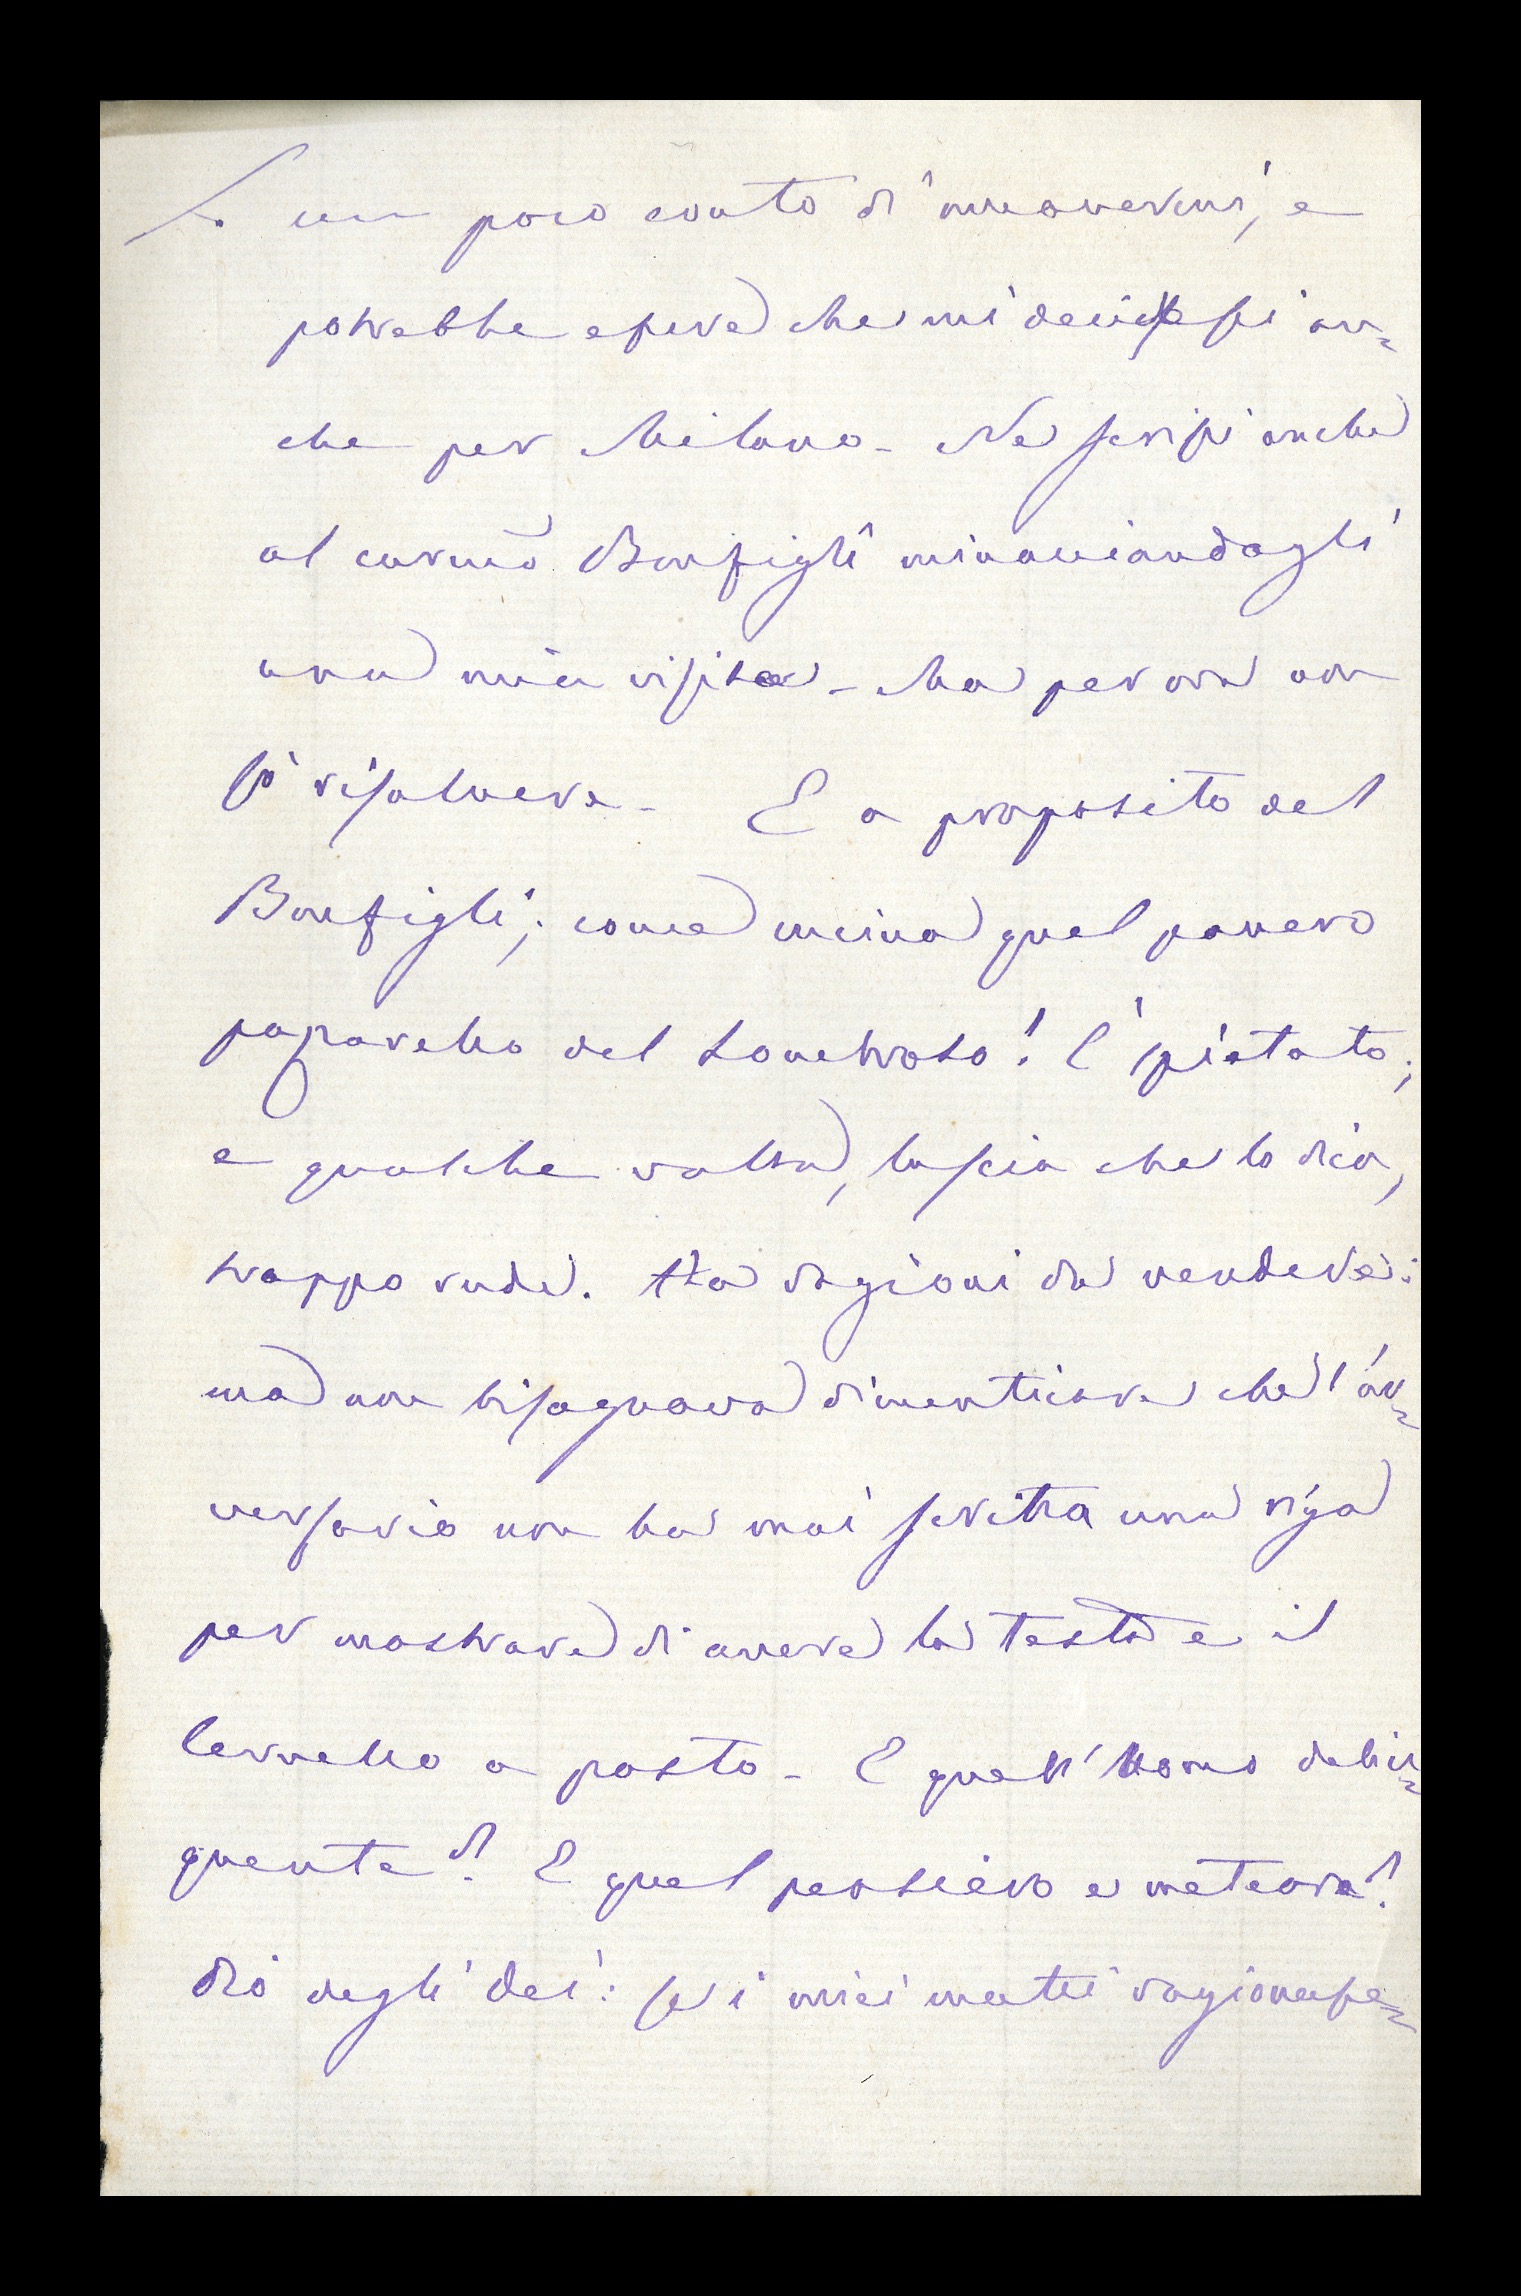 un poco conto di muovermi, e
potrebbe essere che mi decidessi an-
che per Milano - Ne scrissi anche
al carmo Bonfigli minaciandogli
una mia visita - Ma per ora non
so risolvere - E a proposito del
Bonfigli; come cucina quel povero
paparello del Lombroso! È spietato;
e qualche volta, lascia che lo dica,
troppo rude. Ha ragioni da vendere:
ma non bisognava dimenticare che l'av-
versario non ha mai scritta una riga
per mostrare di avere la testa e il
cervello a posto - E quell'Uomo delin-
quente? E quel pensiero e meteore?
Dio degli dei: se i miei matti ragionasse-